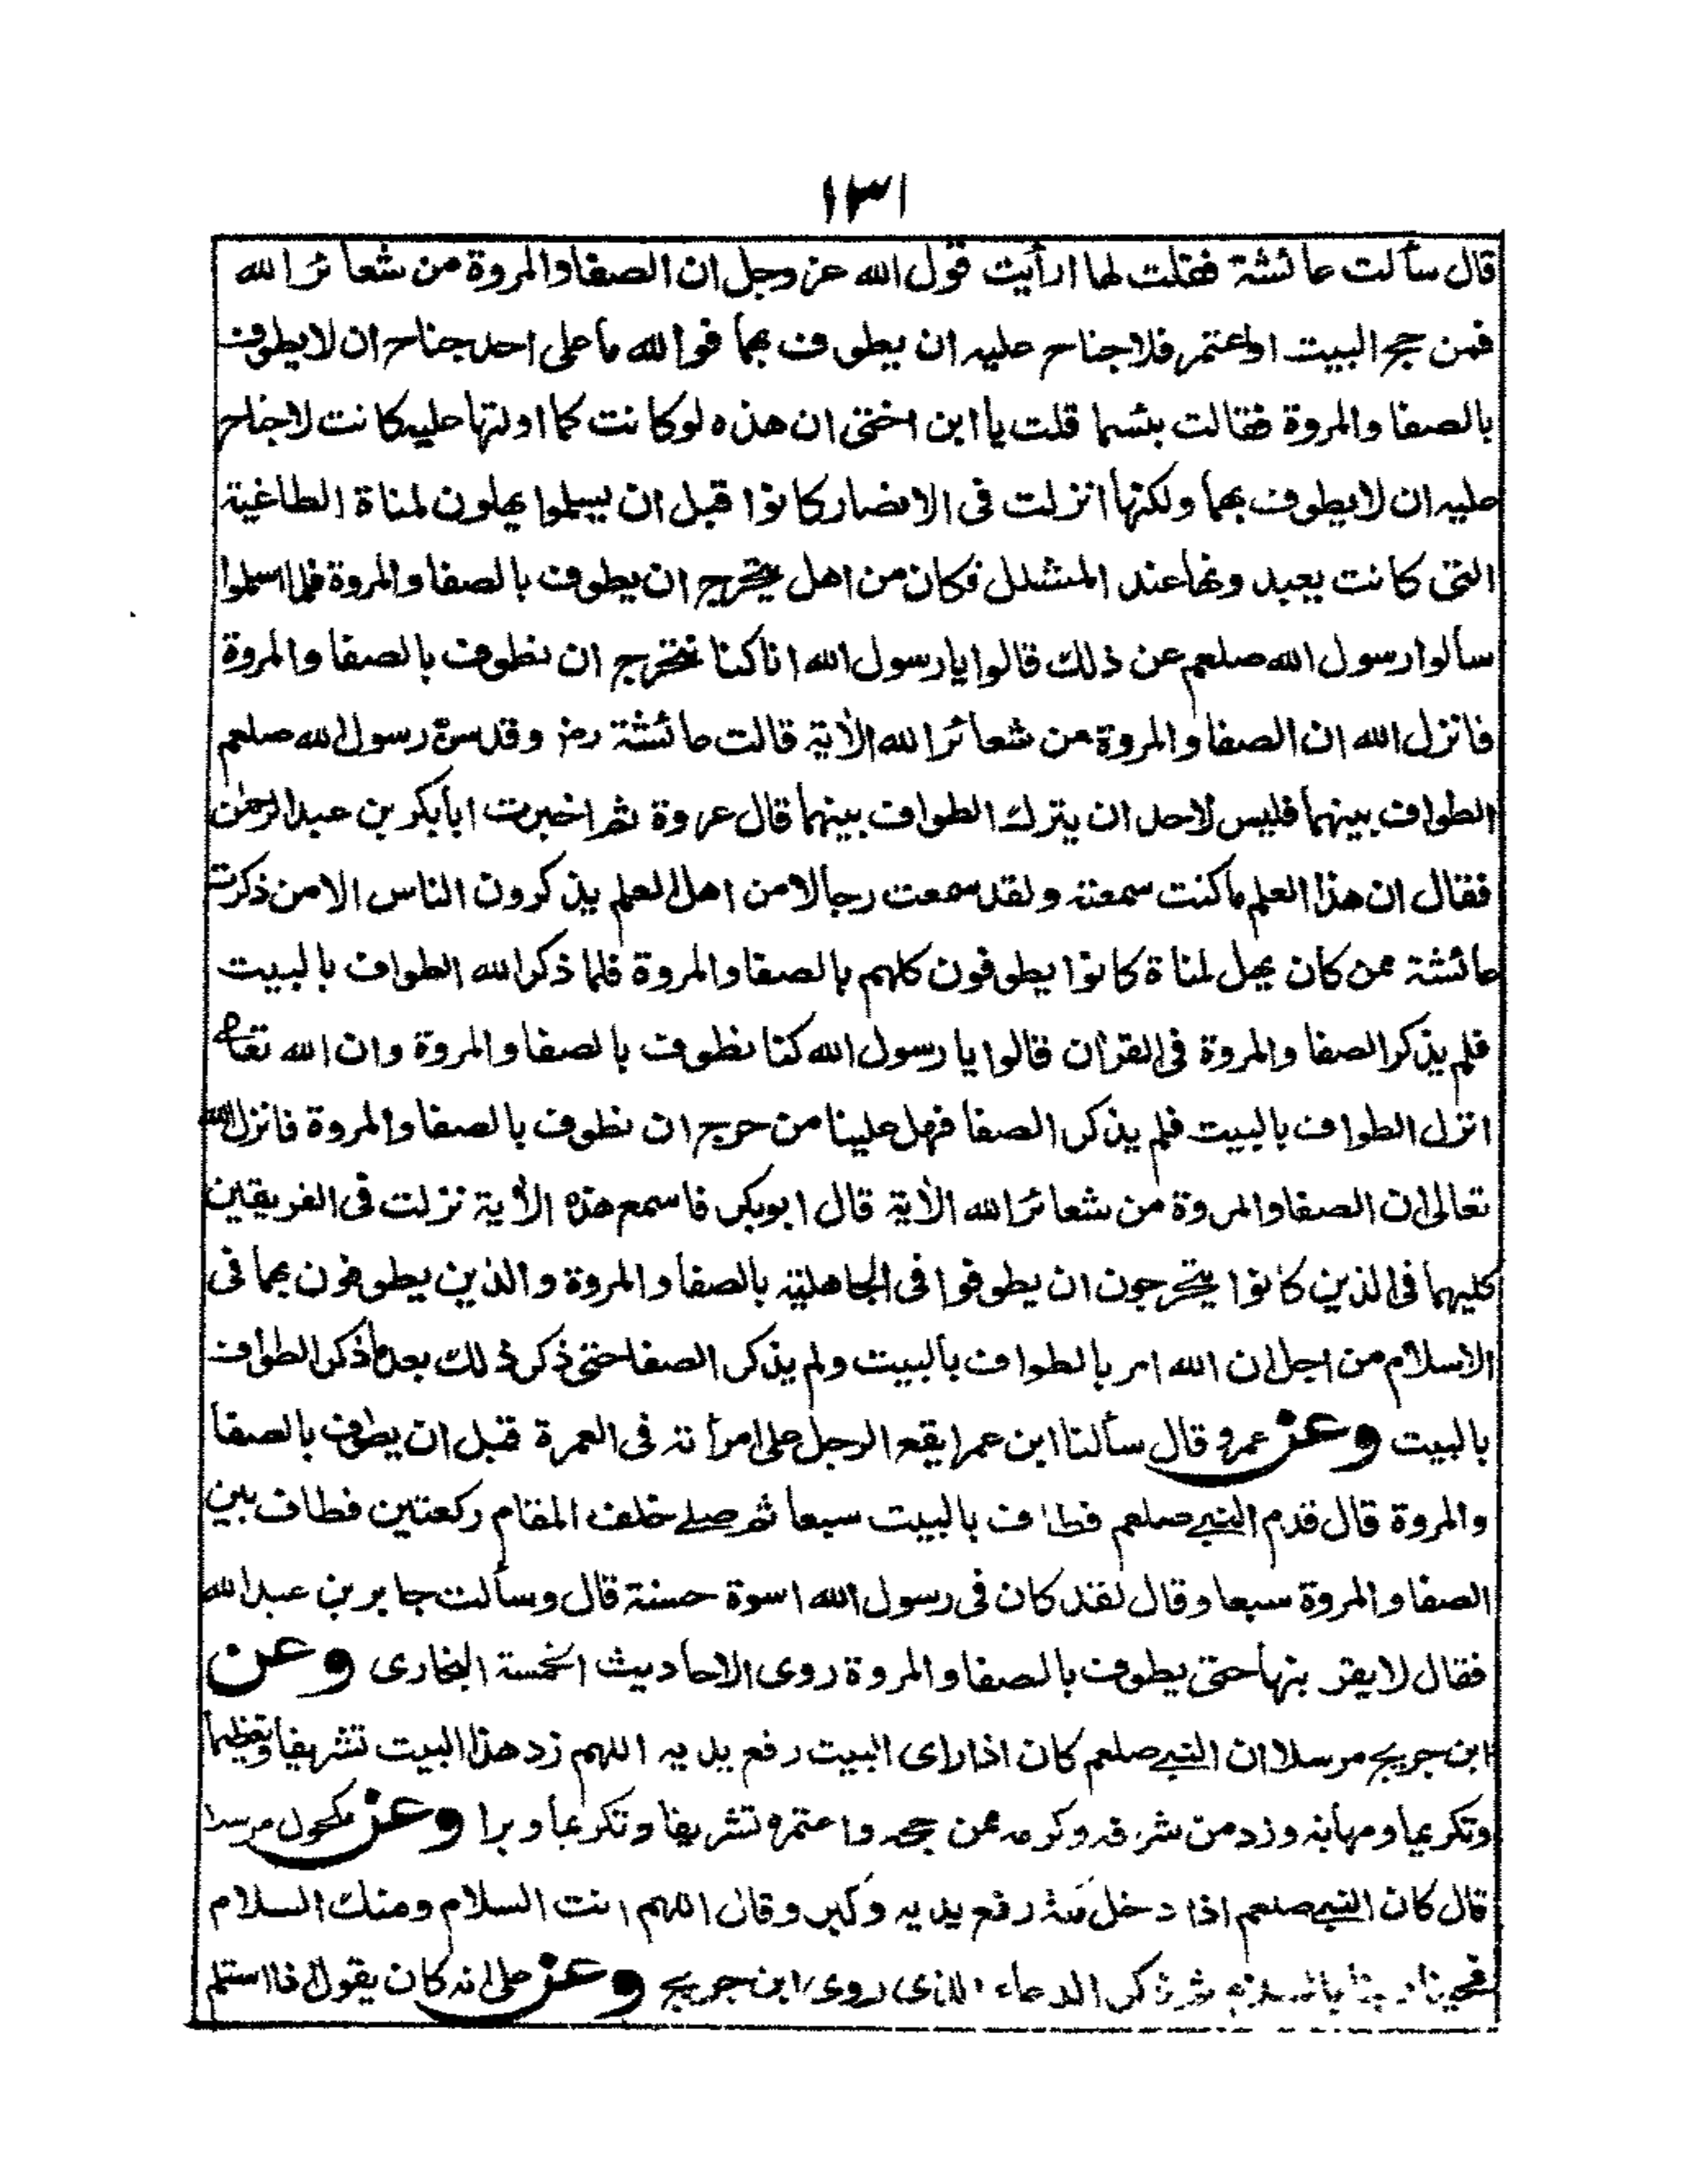 ١٣١
قال سألت عائشة فقلت لها ارأيت قول الله عز وجل ان الصفا والمروة من شعائر الله
فمن حج البيت او اعتمر فلا جناح عليه ان يطوف بهما فوالله ما على احد جناح ان لا يطوف
بالصفا والمروة فقالت بئسما قلت يا ابن اختى ان هذه لو كانت كما اولتها عليه كانت لا جناح
عليه ان لا يطوف بهما ولكنها انزلت فى الانصار كانوا قبل ان يسلموا يهلون لمناة الطاغية
التى كانت يعبدونها عند المشلل فكان من اهل يتحرج ان يطوف بالصفا والمروة فلما اسلموا
سألوا رسول الله صلعم عن ذلك قالوا يا رسول الله انا كنا نتحرج ان نطوف بالصفا والمروة
فانزل الله ان الصفا والمروة من شعائر الله الاٰية قالت عائشة رضـ وقد سنّ رسول الله صلعم
الطواف بينهما فليس لاحد ان يترك الطواف بينهما قال عروة ثم اخبرت ابا بكر بن عبد الرحمٰن
فقال ان هذا العلم ما كنت سمعته ولقد سمعت رجالا من اهل العلم يذكرون الناس الا من ذكرت
عائشة ممن كان يهل لمناة كانوا يطوفون كلهم بالصفا والمروة فلما ذكر الله الطواف بالبيت
فلم يذكر الصفا والمروة فى القرأن قالوا يا رسول الله كنا نطوف بالصفا والمروة وان الله تعا
انزل الطواف بالبيت فلم يذكر الصفا فهل علينا من حرج ان نطوف بالصفا والمروة فانزل الله
تعالى ان الصفا والمروة من شعائر الله الاٰية قال ابو بكر فاسمع هذه الاٰية نزلت فى الفريقين
كليهما فى الذين كانوا يتحرجون ان يطوفوا فى الجاهلية بالصفا والمروة والذين يطوفون بهما فى
الاسلام من اجل ان الله امر بالطواف بالبيت ولم يذكر الصفا حتى ذكر ذلك بعد ما ذكر الطواف
بالبيت وعن عمرو قال سألنا ابن عمر ايقع الرجل على امرأته فى العمرة قبل ان يطوف بالصفا
والمروة قال قدم النبى صلعم فطاف بالبيت سبعا ثم صلى خلف المقام ركعتين فطاف بين
الصفا والمروة سبعا وقال لقد كان فى رسول الله اسوة حسنة قال وسألت جابر بن عبد الله
فقال لا يقربنها حتى يطوف بالصفا والمروة روى الاحاديث الخمسة البخارى وعن
ابن جريج مرسلا ان النبى صلعم كان اذا راى البيت رفع يديه اللهم زد هذا البيت تشريفا وتعظيما
وتكريما ومهابة وزد من شرفه وكرمه ممن حجه واعتمره تشريفا وتكريما وبرا وعن مكحول مرسلا
قال كان النبى صلعم اذا دخل مكة رفع يديه وكبر وقال اللهم انت السلام ومنك السلام
فحينا ربنا بالسلام ثم ذكر الدعاء الذى روى ابن جريج وعن على انه كان يقول اذا استلم